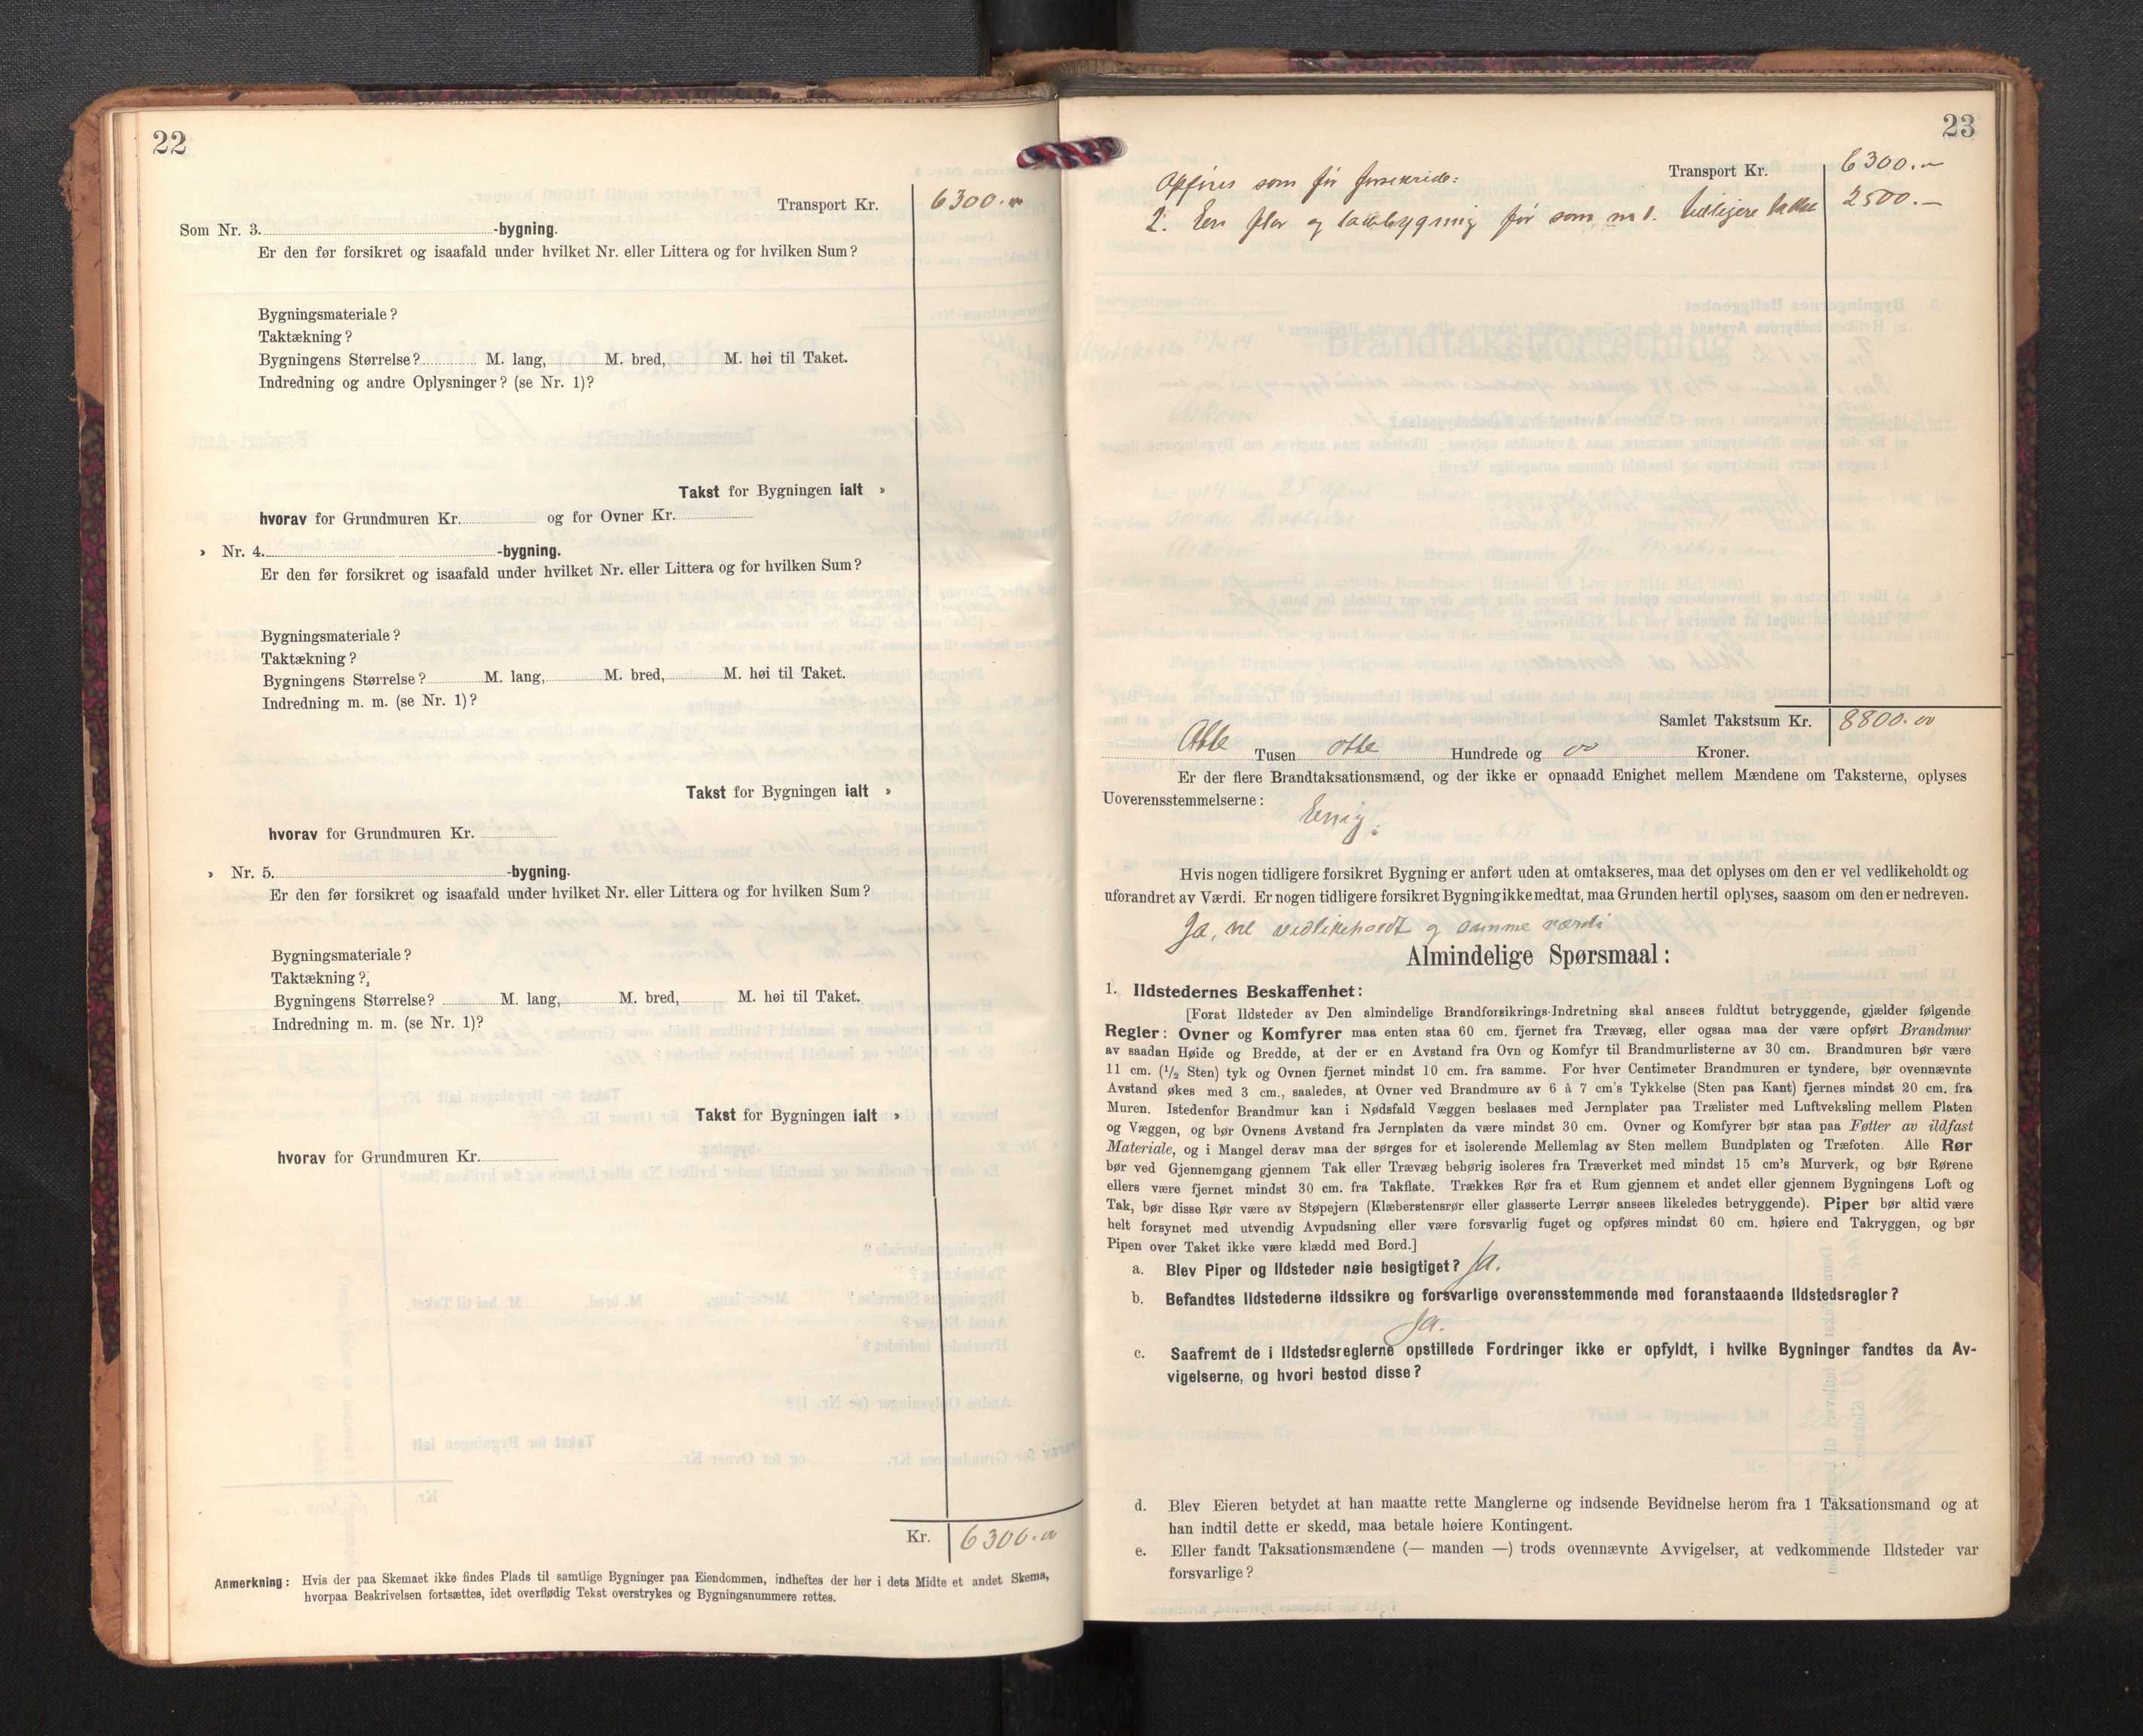 22
Transport Kr. 6300.
Som Nr. 3. -bygning.
Er den før forsikret og isaafald under hvilket Nr. eller Littera og for hvilken Sum?
Bygningsmateriale?
Taktækning?
Bygningens Størrelse? M. lang, M. bred, M. høi til Taket.
Indredning og andre Oplysninger? (se Nr. 1)?
Takst for Bygningen ialt »
hvorav for Grundmuren Kr. og for Ovner Kr.
» Nr. 4. -bygning.
Er den før forsikret og isaafald under hvilket Nr. eller Littera og for hvilken Sum?
Bygningsmateriale?
Taktækning?
Bygningens Størrelse? M. lang, M. bred, M. høi til Taket.
Indredning m. m. (se Nr. 1)?
Takst for Bygningen ialt »
hvorav for Grundmuren Kr.
» Nr. 5. -bygning.
Er den før forsikret og isaafald under hvilket Nr. eller Littera og for hvilken Sum?
Bygningsmateriale?
Taktækning?
Bygningens Størrelse? M. lang, M. bred, M. høi til Taket.
Indredning m. m. (se Nr. 1)?
Takst for Bygningen ialt »
hvorav for Grundmuren Kr.
Kr. 6300.00
Anmerkning: Hvis der paa Skemaet ikke findes Plads til samtlige Bygninger paa Eiendommen, indheftes der her i dets Midte et andet Skema,
hvorpaa Beskrivelsen fortsættes, idet overflødig Tekst overstrykes og Bygningsnummere rettes.
23
Transport Kr. 6300.—
Opføres som før
2. Een og før som 2500.—
Samlet Takstsum Kr. 8800.00
Otte Tusen otte Hundrede og 00 Kroner.
Er der flere Brandtaksationsmænd, og der ikke er opnaadd Enighet mellem Mændene om Taksterne, oplyses
Uoverensstemmelserne:
Enig.
Hvis nogen tidligere forsikret Bygning er anført uden at omtakseres, maa det oplyses om den er vel vedlikeholdt og
uforandret av Værdi. Er nogen tidligere forsikret Bygning ikke medtat, maa Grunden hertil oplyses, saasom om den er nedreven.
Ja, vel vedlikeholdt og samme værdi
Almindelige Spørsmaal:
1. Ildstedernes Beskaffenhet:
[Forat Ildsteder av Den almindelige Brandforsikrings-Indretning skal ansees fuldtut betryggende, gjælder følgende
Regler: Ovner og Komfyrer maa enten staa 60 cm. fjernet fra Trævæg, eller ogsaa maa der være opført Brandmur
av saadan Høide og Bredde, at der er en Avstand fra Ovn og Komfyr til Brandmurlisterne av 30 cm. Brandmuren bør være
11 cm. (1/2 Sten) tyk og Ovnen fjernet mindst 10 cm. fra samme. For hver Centimeter Brandmuren er tyndere, bør ovennævnte
Avstand økes med 3 cm., saaledes, at Ovner ved Brandmure av 6 à 7 cm's Tykkelse (Sten paa Kant) fjernes mindst 20 cm. fra
Muren. Istedenfor Brandmur kan i Nødsfald Væggen beslaaes med Jernplater paa Trælister med Luftveksling mellem Platen
og Væggen, og bør Ovnens Avstand fra Jernplaten da være mindst 30 cm. Ovner og Komfyrer bør staa paa Føtter av ildfast
Materiale, og i Mangel derav maa der sørges for et isolerende Mellemlag av Sten mellem Bundplaten og Træfoten. Alle Rør
bør ved Gjennemgang gjennem Tak eller Trævæg behørig isoleres fra Træverket med mindst 15 cm's Murverk, og bør Rørene
ellers være fjernet mindst 30 cm. fra Takflate. Trækkes Rør fra et Rum gjennem et andet eller gjennem Bygningens Loft og
Tak, bør disse Rør være av Støpejern (Klæberstensrør eller glasserte Lerrør ansees likeledes betryggende). Piper bør altid være
helt forsynet med utvendig Avpudsning eller være forsvarlig fuget og opføres mindst 60 cm. høiere end Takryggen, og bør
Pipen over Taket ikke være klædd med Bord.]
a. Blev Piper og Ildsteder nøie besigtiget? Ja.
b. Befandtes Ildstederne ildssikre og forsvarlige overensstemmende med foranstaaende Ildstedsregler?
Ja.
c. Saafremt de i Ildstedsreglerne opstillede Fordringer ikke er opfyldt, i hvilke Bygninger fandtes da Av-
vigelserne, og hvori bestod disse?
d. Blev Eieren betydet at han maatte rette Manglerne og indsende Bevidnelse herom fra 1 Taksationsmand og at
han indtil dette er skedd, maa betale høiere Kontingent.
e. Eller fandt Taksationsmændene (— manden —) trods ovennævnte Avvigelser, at vedkommende Ildsteder var
forsvarlige?